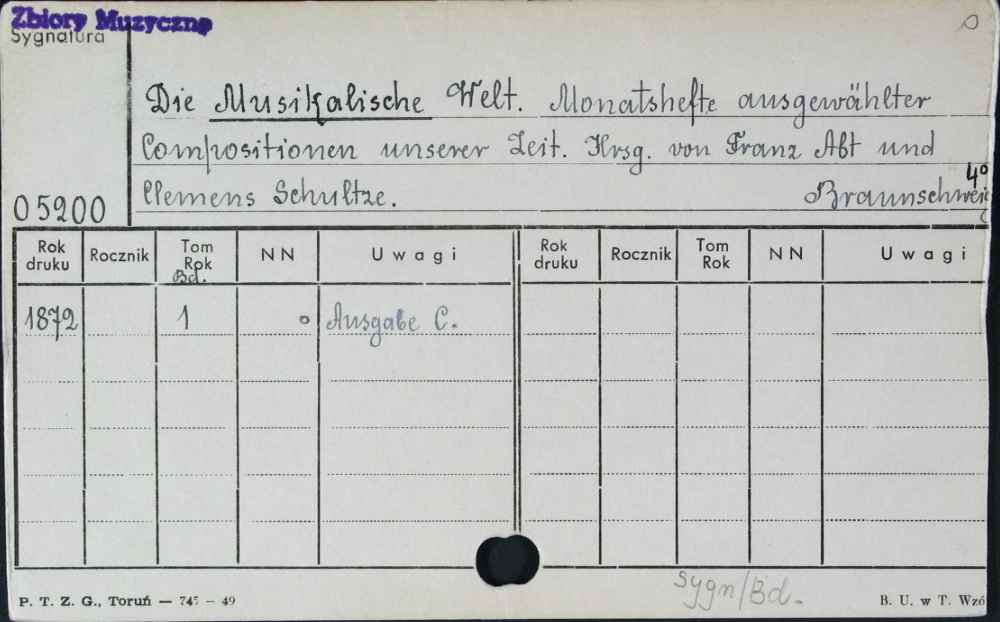 Zbiory Muzyczne
Sygnatura
Die Musikalische Welt. Monatshefte ausgewählter
Compositionen unserer Zeit. Hrsg. von Franz Abt und
4°
Clemens Schultze. Braunschweig
05200
Rok druku Rocznik Tom Rok Bd. NN Uwagi Rok druku Rocznik Tom Rok NN Uwagi
1872 1 Ausgabe C.
Sygn/Bd.
P. T. Z. G., Toruń — 745 – 49 B. U. w T. Wzó